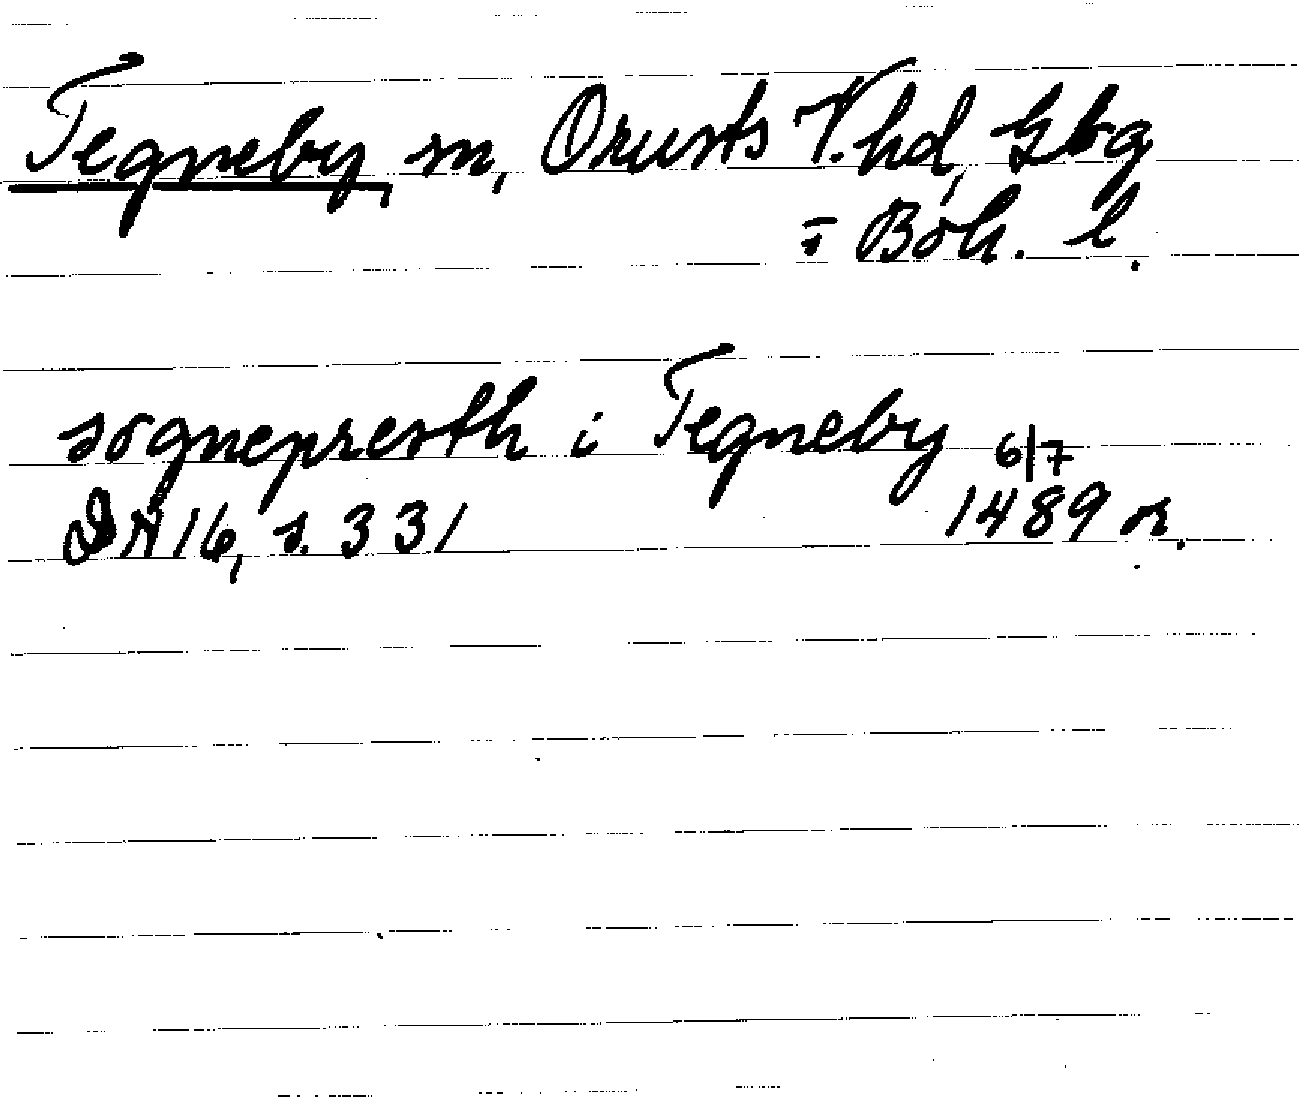 Tegneby, sn, Orusts V. hd, Gbg
= Boh. l.
sognepresth i Tegneby 6/7
DN 16, s. 331 1489 or.